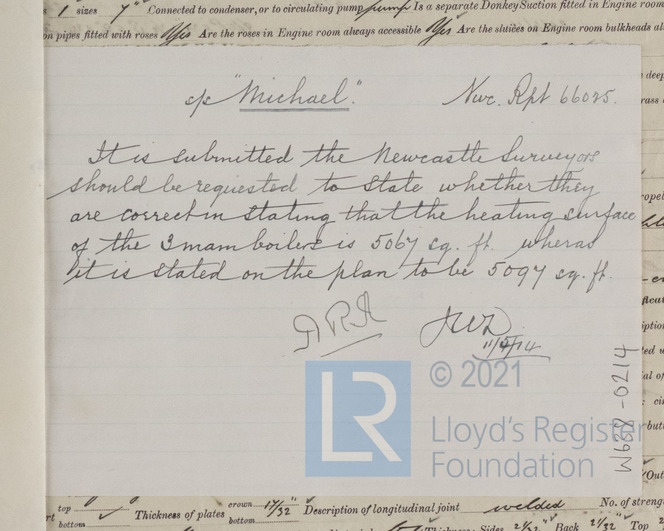 s 1 sizes 7" Connected to condenser, or to circulating pump pump Is a separate Donkey Suction fitted in Engine room
on pipes fitted with roses Yes Are the roses in Engine room always accessible Yes Are the sluices on Engine room bulkheads al
s/s "Michael". Nwc. Rpt 66025.
It is submitted the Newcastle Surveyors
should be requested to state whether they
are correct in stating that the heating surface
of the 3 main boilers is 5067 sq. ft. wheras
it is stated on the plan to be 5097 sq. ft.
11/4/14
W638-0214
© 2021
LR
Lloyd's Register
Foundation
top
bottom
Thickness of plates crown 17/32" Description of longitudinal joint welded No. of streng
bottom
Sides 21/32 Back 21/32 Top